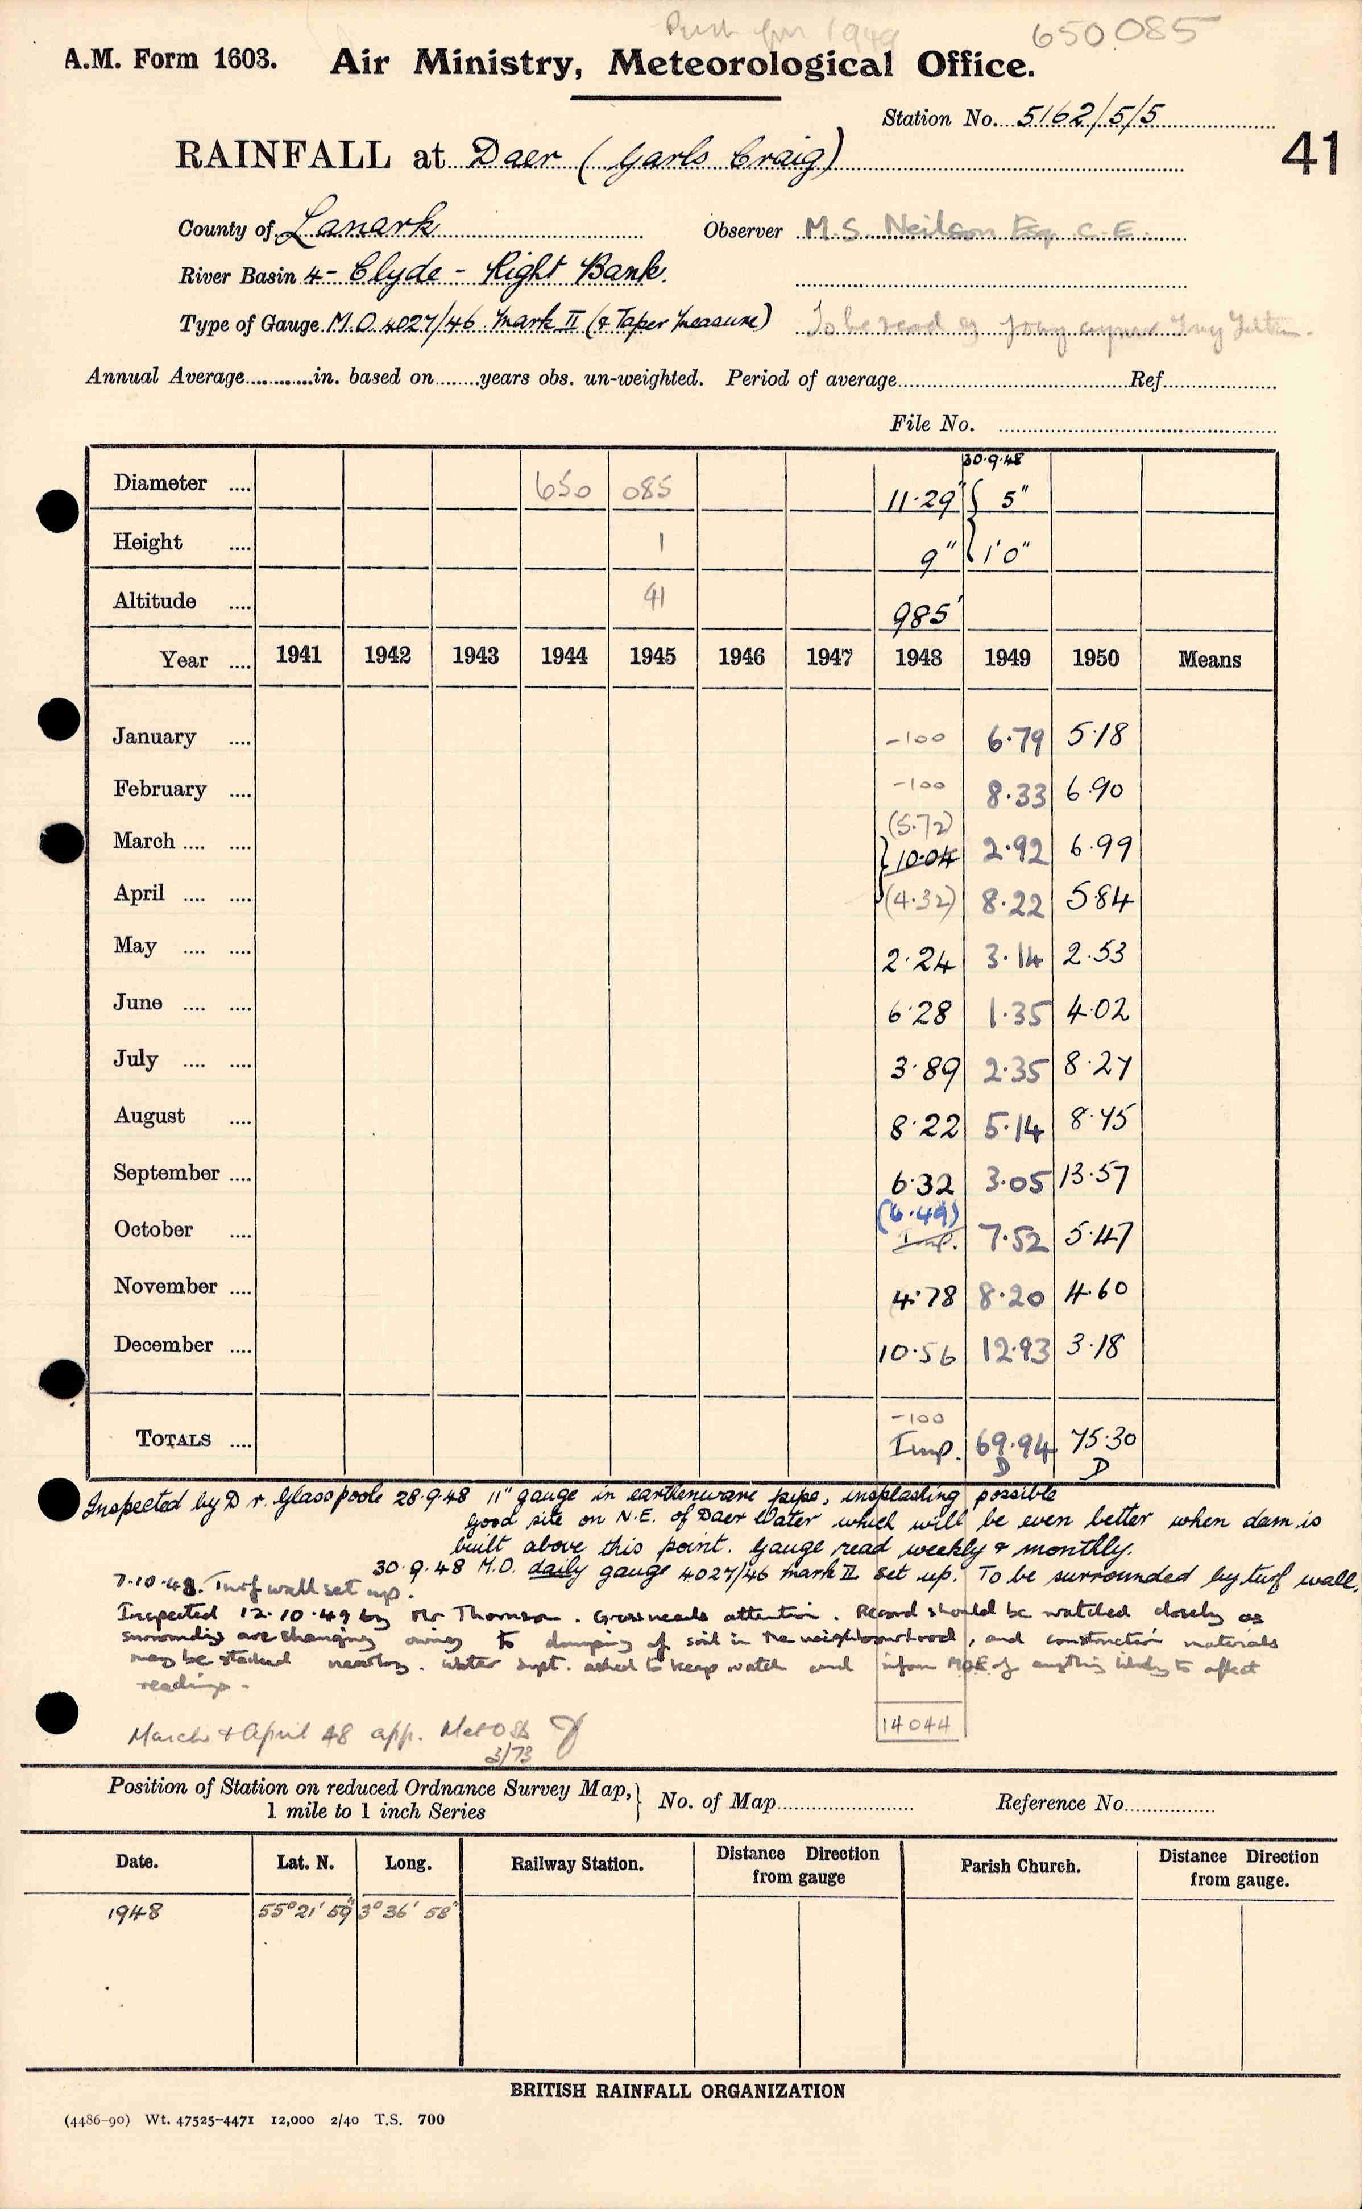 Punch from 1949 650085
A.M. Form 1603. Air Ministry, Meteorological Office.
Station No. 5162/5/5
41
RAINFALL at Daer (Yarls Craig)
County of Lanark Observer M.S. Neilson Esq C.E.
River Basin 4 - Clyde - Right Bank.
Type of Gauge M.O. 4027/46 Mark II (& Taper Measure) To be read by
Annual Average............in. based on........years obs. un-weighted. Period of average............Ref............
File No. ............
30.9.48
Diameter .... 650 085 11.29" { 5"
Height .... 1 9" { 1'0"
Altitude .... 41 985'
Year .... 1941 1942 1943 1944 1945 1946 1947 1948 1949 1950 Means
January .... -100 6.79 5.18
February .... -100 8.33 6.90
(5.72)
March .... .... 10.04 2.92 6.99
April .... .... (4.32) 8.22 5.84
May .... .... 2.24 3.14 2.53
June .... .... 6.28 1.35 4.02
July .... .... 3.89 2.35 8.27
August .... 8.22 5.14 8.75
September .... 6.32 3.05 13.57
(6.49)
October .... Imp. 7.52 5.47
November .... 4.78 8.20 4.60
December .... 10.56 12.93 3.18
-100
TOTALS .... Imp. 69.94 75.30
D D
Inspected by Dr. Glasspoole 28.9.48 11" gauge in earthenware pipe, insplashing possible
Good site on N.E. of Daer Water which will be even better when dam is
built above this point. Gauge read weekly & monthly.
30.9.48 M.O. daily gauge 4027/46 Mark II set up. To be surrounded by turf wall.
7.10.48. Turf wall set up.
Inspected 12.10.49 by Mr Thomson. Grass needs attention. Record should be watched closely as
surroundings are changing owing to dumping of soil in the neighbourhood, and construction materials
may be stacked nearby. Water Dept. asked to keep watch and inform M.O.E. of anything likely to affect
readings.
March & April 48 app. Met O 8b
3/73
14044
Position of Station on reduced Ordnance Survey Map, } No. of Map............ Reference No............
1 mile to 1 inch Series
Date. Lat. N. Long. Railway Station. Distance Direction from gauge Parish Church. Distance Direction from gauge.
1948 55° 21' 59" 3° 36' 58"
BRITISH RAINFALL ORGANIZATION
(4486-90) Wt. 47525-4471 12,000 2/40 T.S. 700